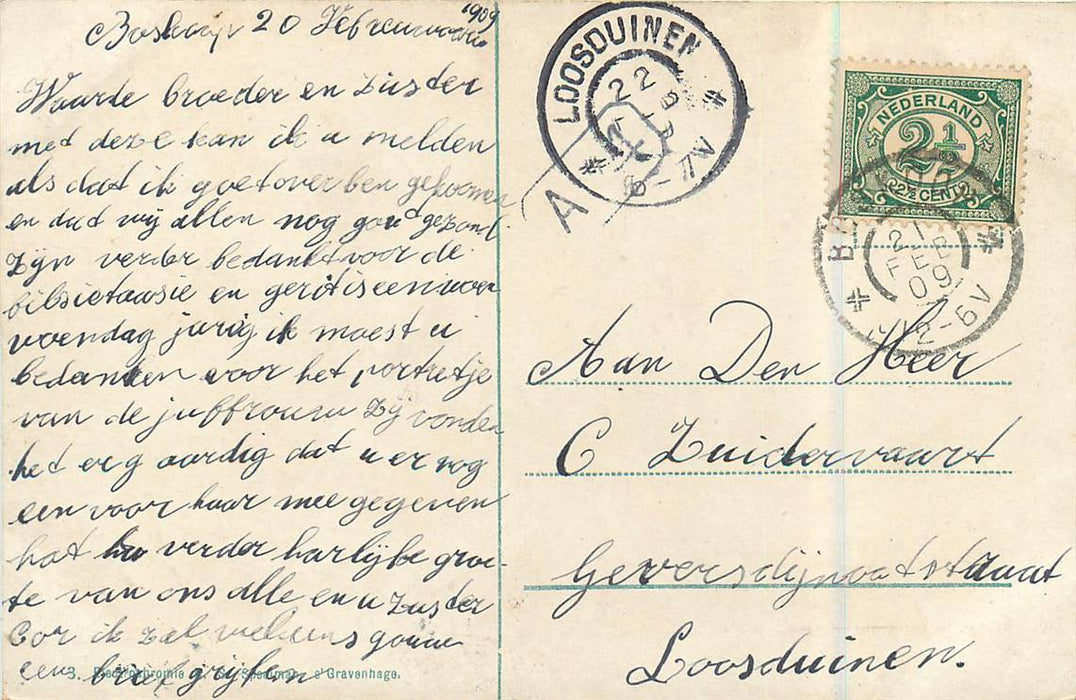 Boskoop 20 Februwarie 1909
Waarde broeder en Zuster
met deze kan ik u melden
als dat ik goet over ben gekoomen
en dat wij allen nog goet gezond
zijn verder bedankt voor de
en
voendag jarig ik moest u
bedanken voor het portretje
van de juffrouw Zij vonden
het erg aardig dat u er nog
een voor haar mee gegeven
hat verder harlijke groe-
te van ons alle en u Zuster
Cor ik zal gouw
eens brief
3. s'Gravenhage.
LOOSDUINEN
22
A
NEDERLAND
2½
2½ CENT 2½
21
FEB
09
12-6V
Aan Den Heer
C Zuidervaart
Geversdijnootstraat
Loosduinen.